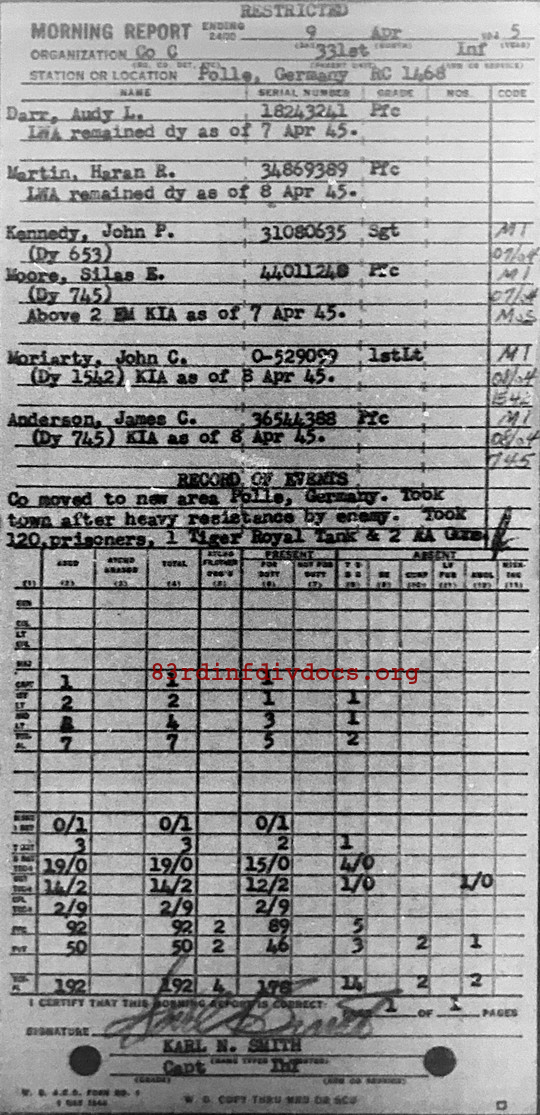 RESTRICTED
MORNING REPORT ENDING 2400 9 Apr 1945
ORGANIZATION Co C 331st Inf
STATION OR LOCATION Polle, Germany RC 1468
NAME SERIAL NUMBER GRADE MOS. CODE
Darr, Audy L. 18243241 Pfc
LWA remained dy as of 7 Apr 45.
Martin, Haran R. 34869389 Pfc
LWA remained dy as of 8 Apr 45.
Kennedy, John P. 31080635 Sgt MI
(Dy 653) 07/04
Moore, Silas E. 44011248 Pfc MI
(Dy 745) 07/04
Above 2 EM KIA as of 7 Apr 45. MOS
Moriarty, John C. O-529099 1stLt MI
(Dy 1542) KIA as of 8 Apr 45. 08/04
1542
Anderson, James C. 36544388 Pfc MI
(Dy 745) KIA as of 8 Apr 45. 08/04
745
RECORD OF EVENTS
Co moved to new area Polle, Germany. Took
town after heavy resistance by enemy. Took
120 prisoners, 1 Tiger Royal Tank & 2 AA Guns.
PRESENT ABSENT
ASGD TOTAL FOR DUTY NOT FOR DUTY
(1) (2) (3) (4) (5) (6) (7) (8) (9) (10) (11) (12) (13)
COL
LT COL
MAJ
83rdinfdivdocs.org
CAPT 1 1 1
1ST LT 2 2 1 1
2ND LT 4 3 1
7 7 5 2
0/1 0/1 0/1
T SGT 3 3 2 1
19/0 19/0 15/0 4/0
14/2 14/2 12/2 1/0 1/0
2/9 2/9 2/9
PFC 92 92 2 89 5
PVT 50 50 2 46 3 2 1
192 192 4 178 14 2 2
I CERTIFY THAT THIS MORNING REPORT IS CORRECT PAGE 1 OF 1 PAGES
SIGNATURE Karl N. Smith
KARL N. SMITH
Capt Inf
(GRADE)
W. D. A.G.O. FORM NO. 1
W. D. COPY THRU MRU OR SCU